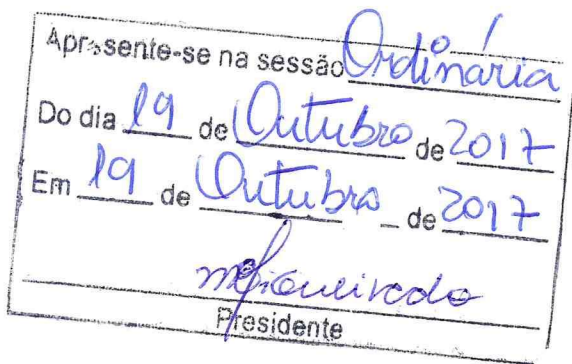 Apresente-se na sessão Ordinária
Do dia 19 de Outubro de 2017
Em 19 de Outubro de 2017
Presidente